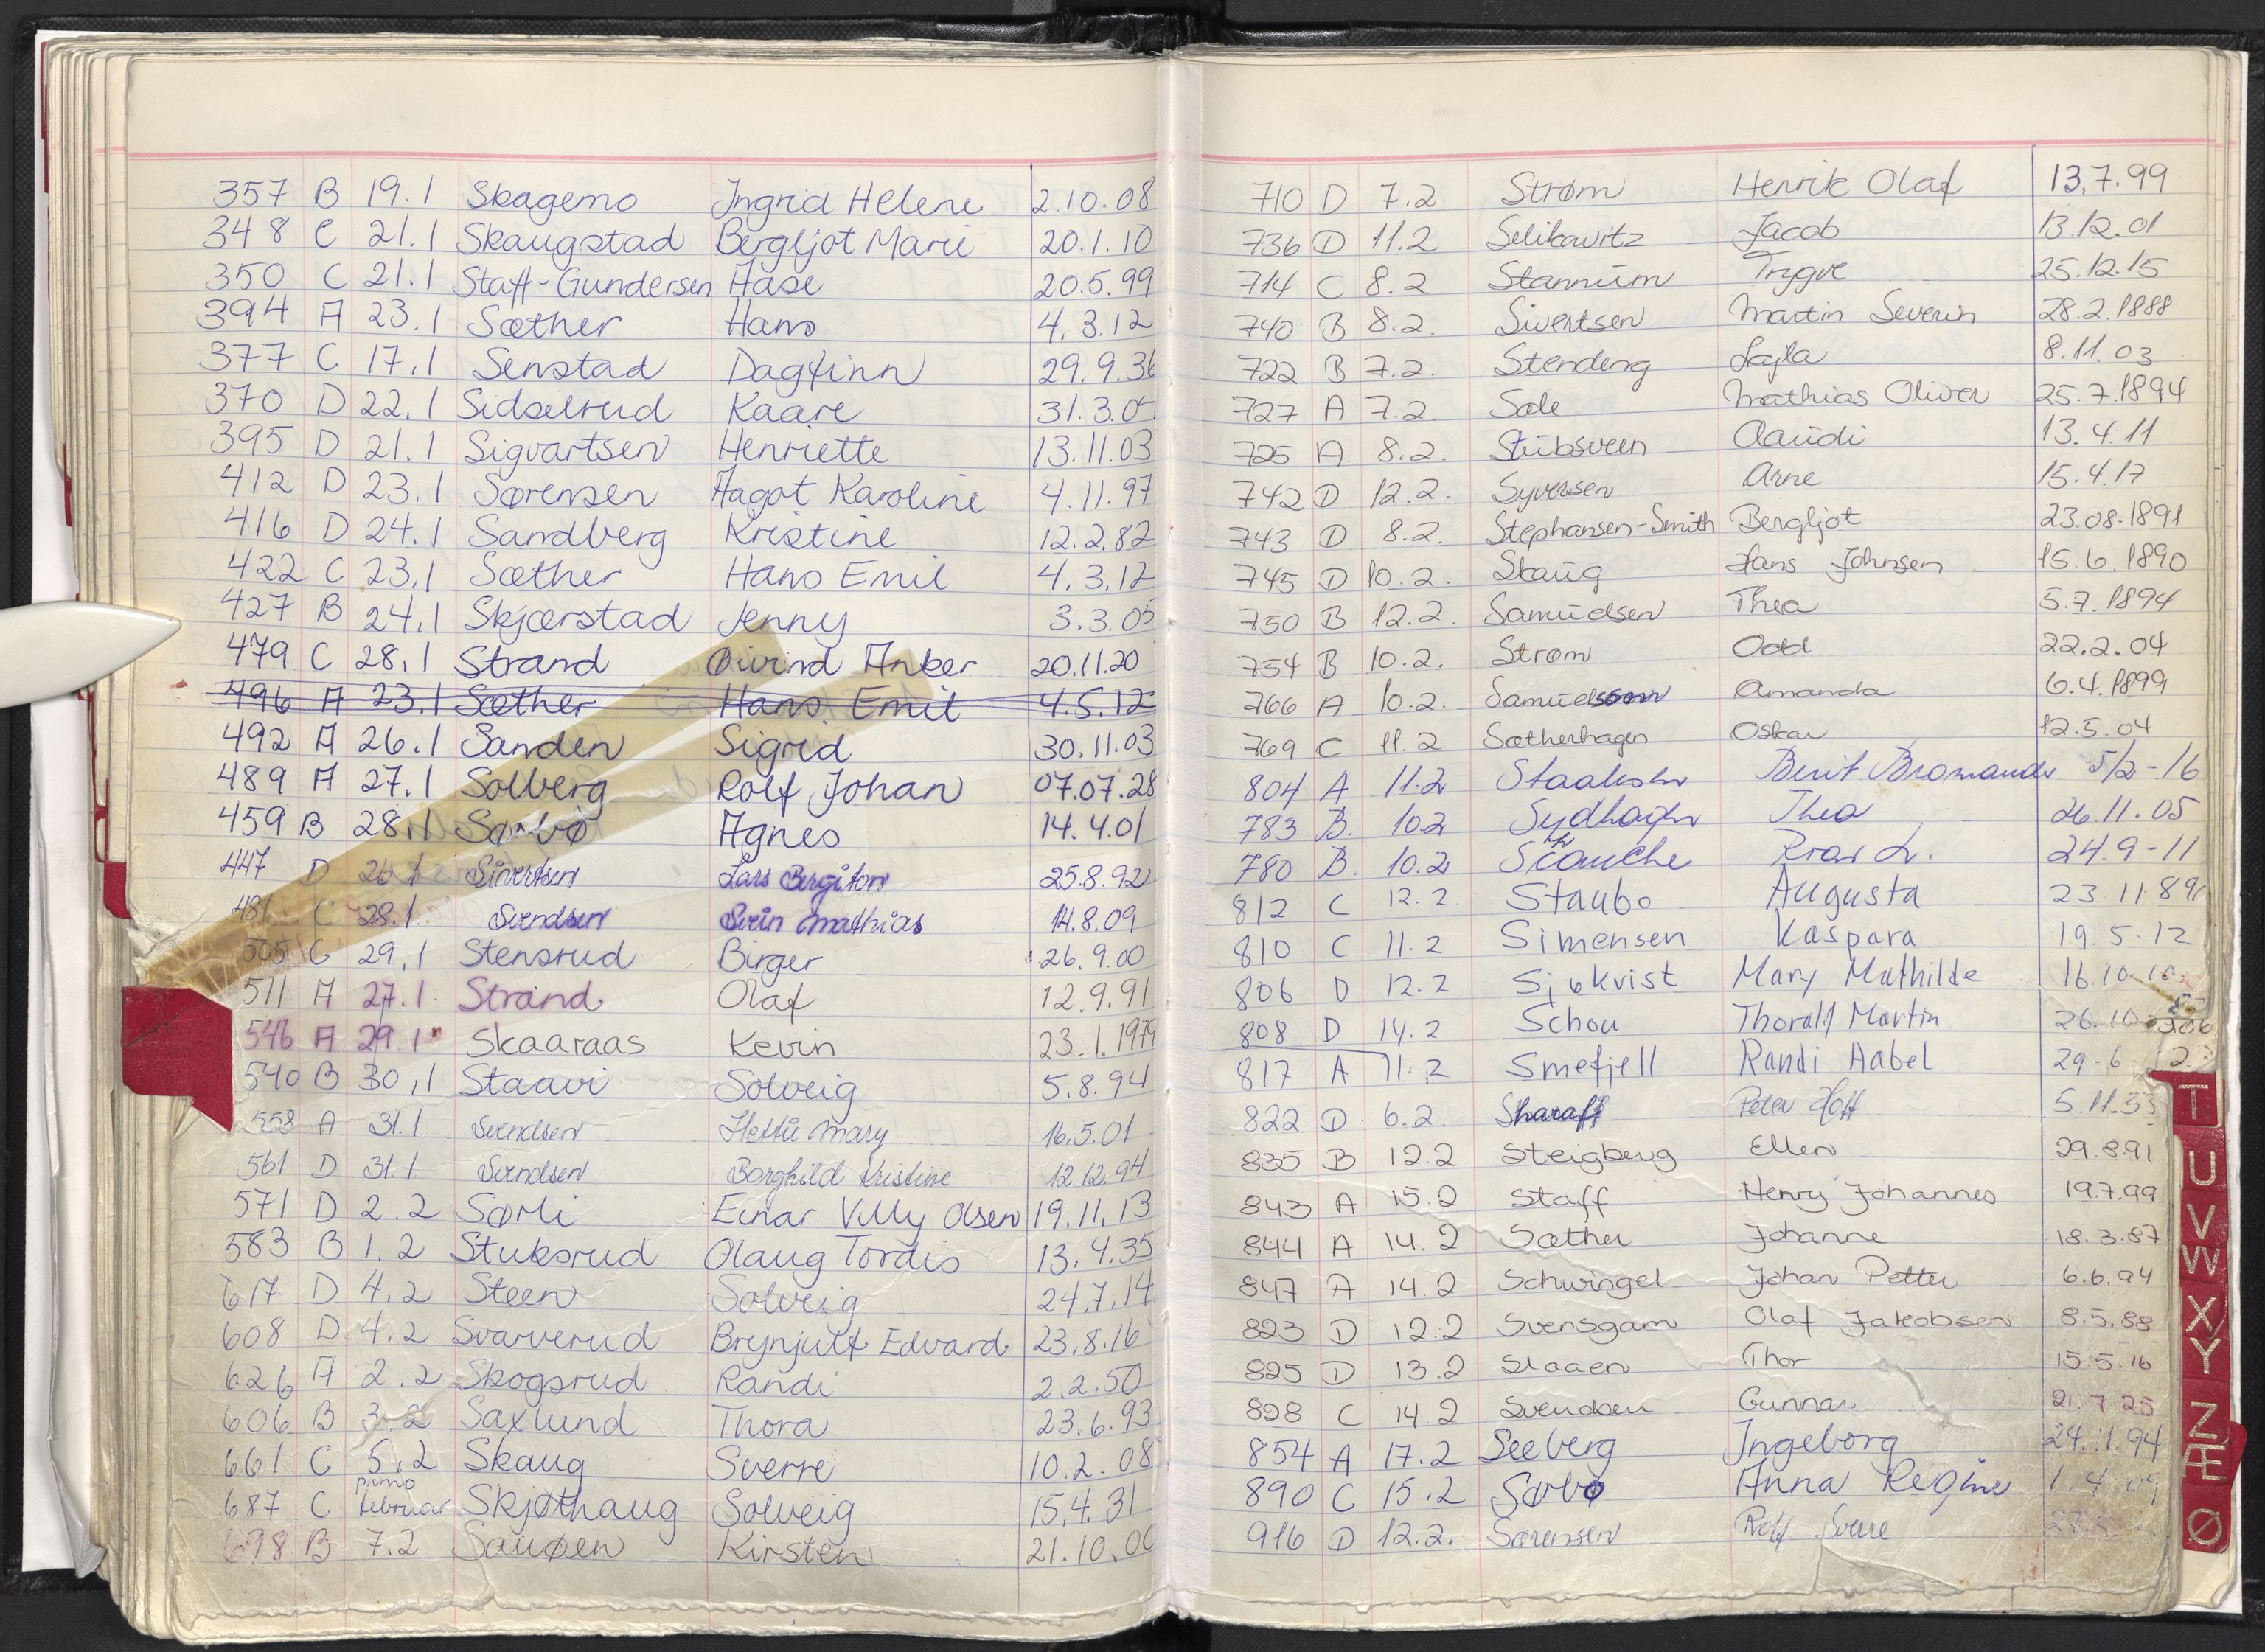 357 B 19.1 Skagemo Ingrid Helene 2.10.08
348 C 21.1 Skaugstad Bergljot Marie 20.1.10
350 C 21.1 Staff-Gundersen Aase 20.5.99
394 A 23.1 Sæther Hans 4.3.12
377 C 17.1 Senstad Dagfinn 29.9.36
370 D 22.1 Sidselrud Kaare 31.3.0
395 D 21.1 Sigvartsen Henriette 13.11.03
412 D 23.1 Sørensen Aagot Karoline 4.11.97
416 D 24.1 Sandberg Kristine 12.2.82
422 C 23.1 Sæther Hans Emil 4.3.12
427 B 24.1 Skjærstad Jenny 3.3.05
479 C 28.1 Strand Øivind Anker 20.11.20
496 A 23.1 Sæther Hans Emil 4.5.12
492 A 26.1 Sanden Sigrid 30.11.03
489 A 27.1 Solberg Rolf Johan 07.07.28
459 B 28.1 Sørbø Agnes 14.4.01
447 D 26.1 Sivertsen Lars Bergiton 25.8.92
481 C 28.1 Svendsen Svein Mathias 14.8.09
505 C 29.1 Stensrud Birger 26.9.00
511 A 27.1 Strand Olaf 12.9.91
546 A 29.1 Skaaraas Kevin 23.1.1979
540 B 30.1 Staavi Solveig 5.8.94
558 A 31.1 Svendsen Mary 16.5.01
561 D 31.1 Svendsen Borghild Kristine 12.12.94
571 D 2.2 Sørli Einar Villy Olsen 19.11.13
583 B 1.2 Stuksrud Olaug Tordis 13.4.35
617 D 4.2 Steen Solveig 24.7.14
608 D 4.2 Svarverud Brynjulf Edvard 23.8.16
626 A 2.2 Skogsrud Randi 2.2.50
606 B 3.2 Saxlund Thora 23.6.93
661 C 5.2 Skaug Sverre 10.2.08
687 C primo februar Skjøthaug Solveig 15.4.31
698 B 7.2 Sauøen Kirsten 21.10.0
710 D 7.2 Strøm Henrik Olaf 13.7.99
736 D 11.2 Selikowitz Jacob 13.12.01
714 C 8.2 Stamnum Trygve 25.12.15
740 B 8.2. Sivertsen Martin Severin 28.2.1888
722 B 7.2. Stendeng Lajla 8.11.03
727 A 7.2. Sale Mathias Oliver 25.7.1894
725 A 8.2. Stubsveen Claudi 13.4.11
742 D 12.2. Syversen Arne 15.4.17
743 D 8.2. Stephansen-Smith Bergljot 23.08.1891
745 D 10.2. Skaug Hans Johnsen 15.6.1890
750 B 12.2. Samuelsen Thea 5.7.1894
754 B 10.2. Strøm Odd 22.2.04
766 A 10.2. Amanda 6.4.1899
769 C 11.2 Sætherhagen Oskar 12.5.04
804 A 11.2 Berit 5/2-16
783 B. 10.2 Sydhagen Thea 26.11.05
780 B. 10.2 24.9-11
812 C 12.2 Staubo Augusta 23.11.89
810 C 11.2 Simensen Kaspara 19.5.12
806 D 12.2 Sjøkvist Mary Mathilde 16.10
808 D 14.2 Schou Thoralf Martin 26.10
817 A 11.2 Smefjell Randi Aabel 29-6
822 D 6.2. Peter Hoff 5.11.53
835 B 12.2 Steigberg Ellen 29.8.91
843 A 15.2 Staff Henry Johannes 19.7.99
844 A 14.2 Sæther Johanne 18.3.87
847 A 14.2 Schwingel Johan Petter 6.6.94
823 D 12.2 Svensgam Olaf Jakobsen 8.5.88
825 D 13.2 Staaen Thor 15.5.16
828 C 14.2 Svendsen Gunnar 21.7.25
854 A 17.2 Seeberg Ingeborg 24.11.94
890 C 15.2 Sørbø Anna Regine 1.4
916 D 12.2. Sørensen Rolf Sverre
T
U
V
W
X
Y
Z
Æ
Ø